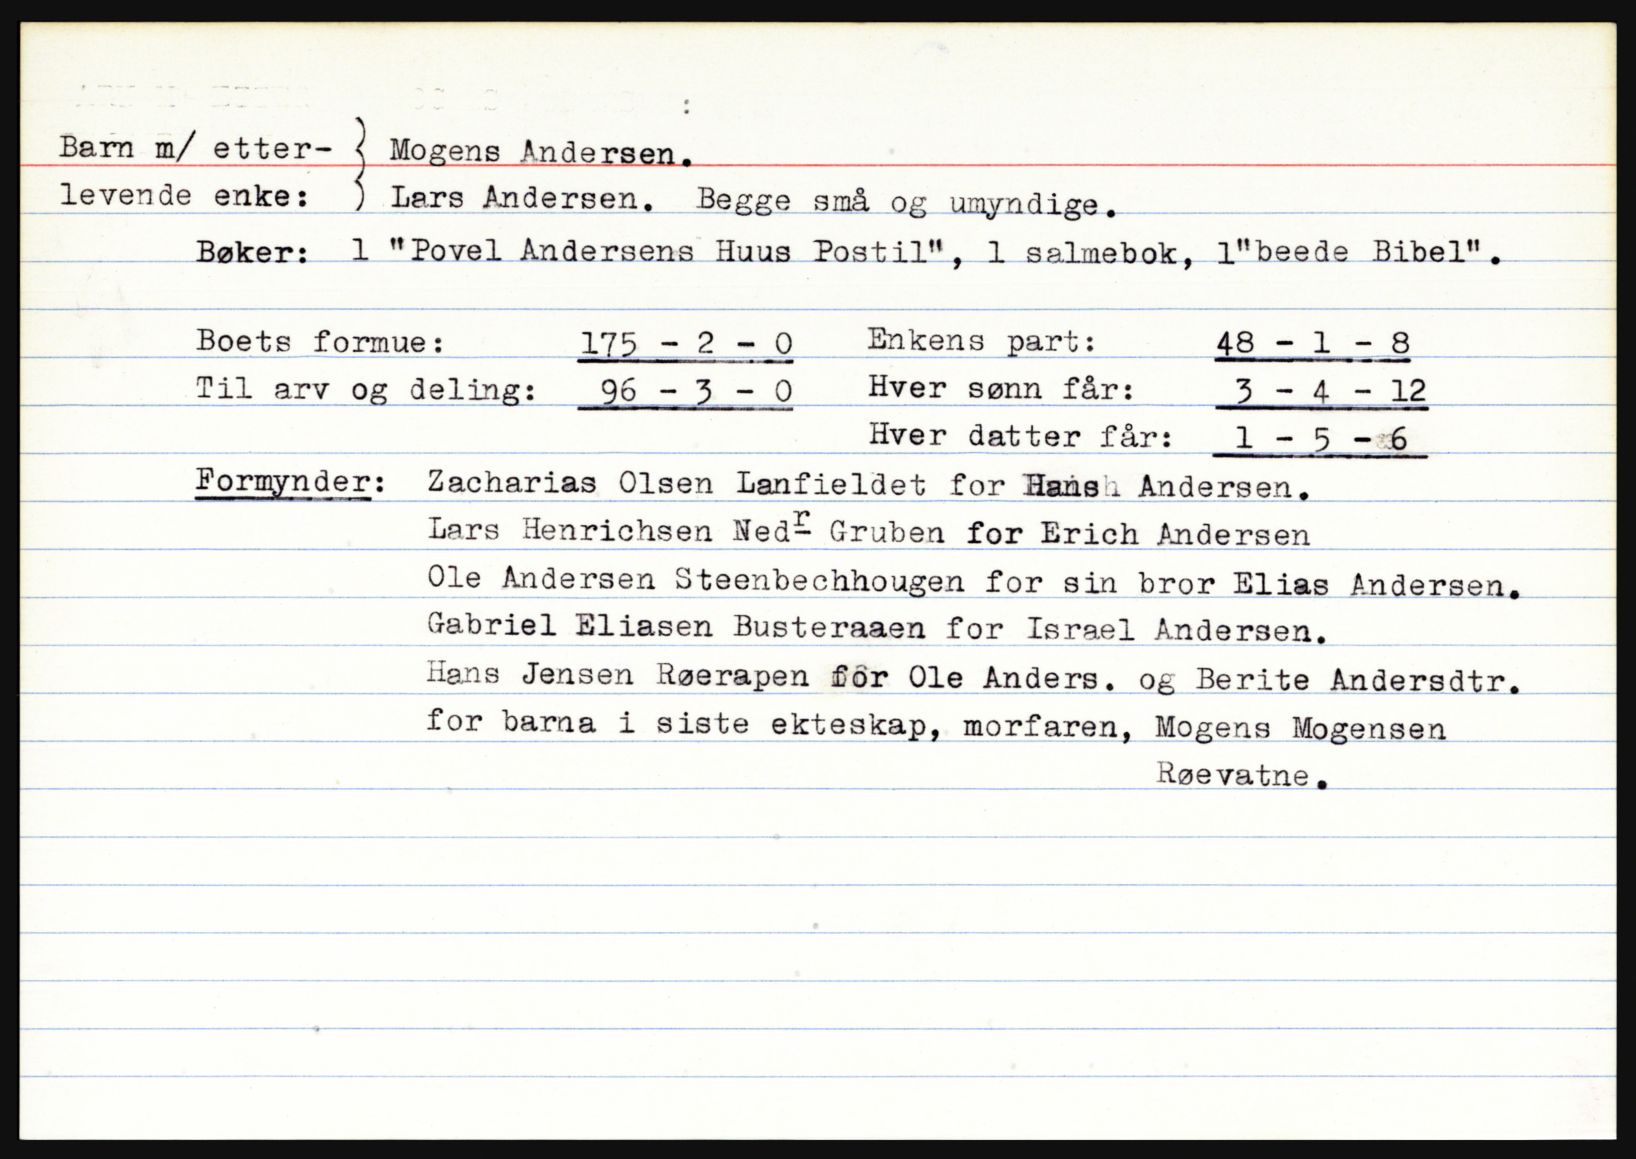 Barn m/ etter- ) Mogens Andersen.
levende enke: ) Lars Andersen. Begge små og umyndige.
Bøker: 1 "Povel Andersens Huus Postil", 1 salmebok, 1"beede Bibel".
Boets formue: 175 - 2 - 0 Enkens part: 48 - 1 - 8
Til arv og deling: 96 - 3 - 0 Hver sønn får: 3 - 4 - 12
Hver datter får: 1 - 5 - 6
Formynder: Zacharias Olsen Lanfieldet for Hans Andersen.
Lars Henrichsen Nedr Gruben for Erich Andersen
Ole Andersen Steenbechhougen for sin bror Elias Andersen.
Gabriel Eliasen Busteraaen for Israel Andersen.
Hans Jensen Røerapen for Ole Anders. og Berite Andersdtr.
for barna i siste ekteskap, morfaren, Mogens Mogensen
Røevatne.